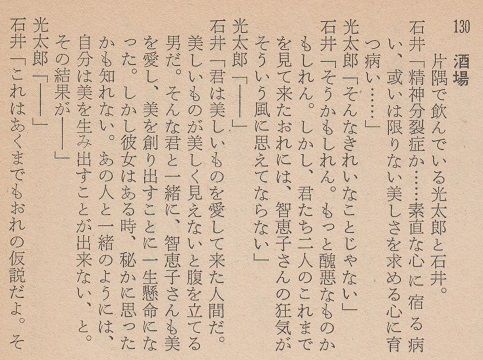 130 酒場
片隅で飲んでいる光太郎と石井。
石井「精神分裂症か……素直な心に宿る病
い、或いは限りない美しさを求める心に育
つ病い……」
光太郎「そんなきれいなことじゃない」
石井「そうかもしれん。もっと醜悪なものか
もしれん。しかし、君たち二人のこれまで
を見て来たおれには、智恵子さんの狂気が
そういう風に思えてならない」
光太郎「――」
石井「君は美しいものを愛して来た人間だ。
美しいものが美しく見えないと腹を立てる
男だ。そんな君と一緒に、智恵子さんも美
を愛し、美を創り出すことに一生懸命にな
った。しかし彼女はある時、秘かに思った
かも知れない。あの人と一緒のようには、
自分は美を生み出すことが出来ない、と。
その結果が――」
光太郎「――」
石井「これはあくまでもおれの仮説だよ。そ